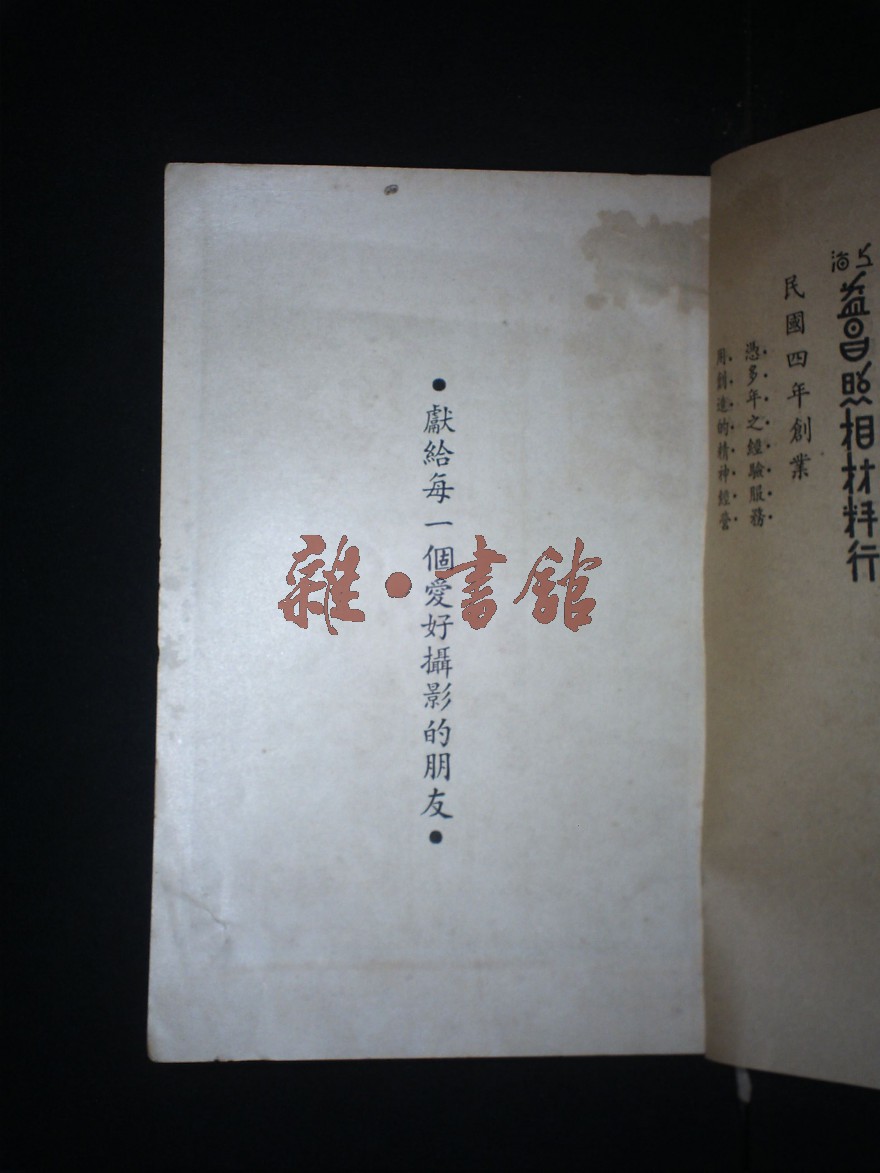 ●獻給每一個愛好攝影的朋友●
雜·書館
上海
益昌照相材料行
民國四年創業
憑多年之經驗服務
用創造的精神經營